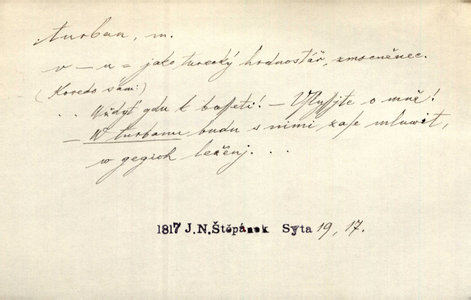 turban, m.
v – u = jako turecký hodnostář, zmocněnec.
(Koredo sám:)
. . . Wždyť gdu k bassetj! – Vlyšjte o mně!
– W turbanu budu s nimi zase mluwit,
w gegich leženj . . .
1817 J.N.Štěpánek Syta 19, 17.